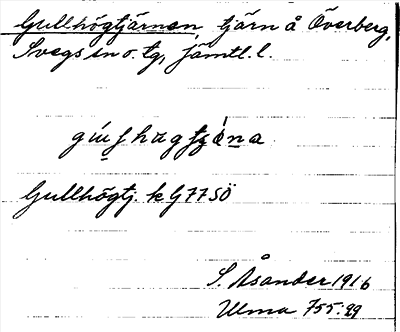 Gullhögtjärnen, tjärn å Överberg,
Svegs sn o. tg, Jämtl. l.
Gullhögtj. k G 77 SÖ
S. Åsander 1916
Ulma 755:99